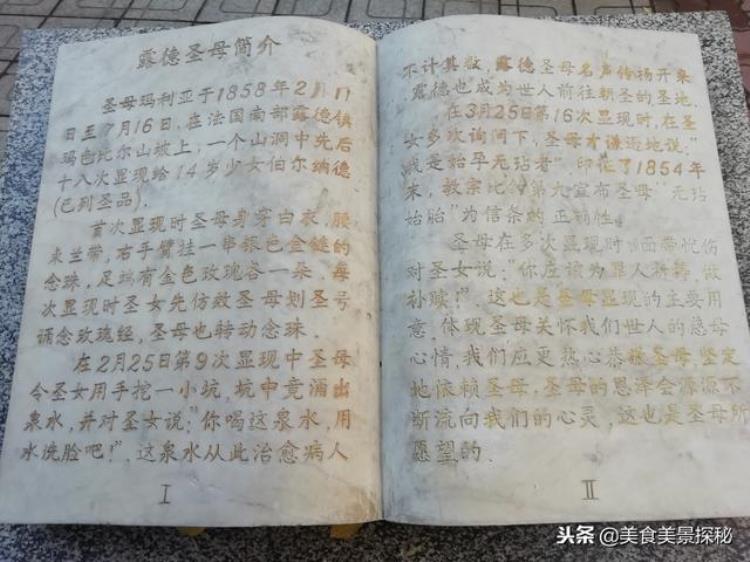 露德圣母简介
圣母玛利亚于1858年2月11
日至7月16日，在法国南部露德镇
玛色比尔山坡上，一个山洞中先后
十八次显现给14岁少女伯尔纳德
(已列圣品).
首次显现时圣母身穿白衣，腰
束兰带，右手臂挂一串银色金链的
念珠，足端有金色玫瑰各一朵，每
次显现时圣女先仿效圣母划圣号
诵念玫瑰经，圣母也转动念珠.
在2月25日第9次显现中圣母
令圣女用手挖一小坑，坑中竟涌出
泉水，并对圣女说："你喝这泉水，用
水洗脸吧!"，这泉水从此治愈病人
I
不计其数，露德圣母名声传扬开来
.露德也成为世人前往朝圣的圣地.
在3月25日第16次显现时，在圣
女多次询问下，圣母才谦逊地说："
我是始孕无玷者"，印证了1854年
末，教宗比约第九宣布圣母"无玷
始胎"为信条的正确性.
圣母在多次显现时，面带忧伤
对圣女说："你应该为罪人祈祷，做
补赎!"，这也是圣母显现的主要用
意，体现圣母关怀我们世人的慈母
心情，我们应更热心恭敬圣母，坚定
地依赖圣母，圣母的恩泽会源源不
断流向我们的心灵，这也是圣母所
愿望的.
II
头条 @美食美景探秘